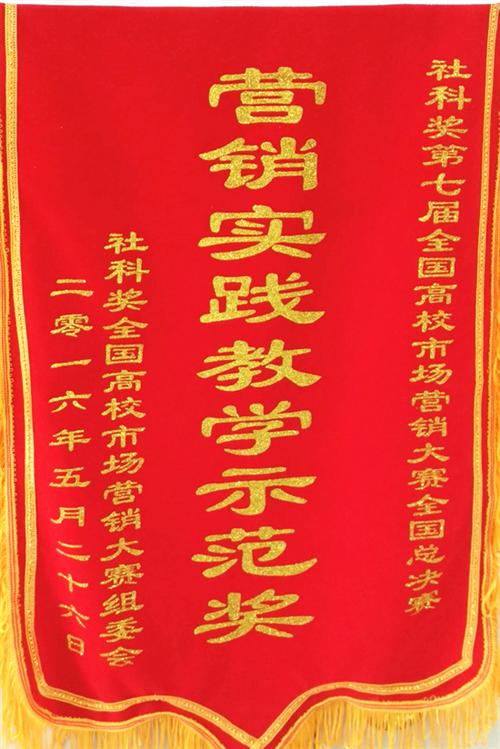 社科奖第七届全国高校市场营销大赛全国总决赛
营销实践教学示范奖
社科奖全国高校市场营销大赛组委会
二零一六年五月二十六日